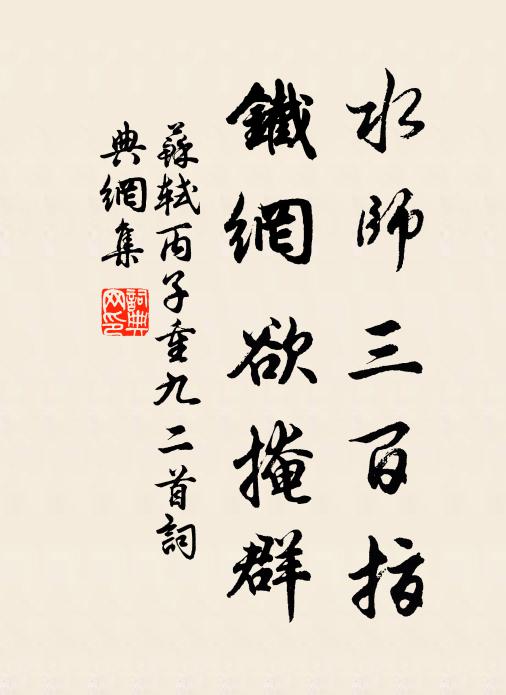 水师三百指
鐵網欲掩群
蘇軾丙子重九二首詞
典網集
詞典網印